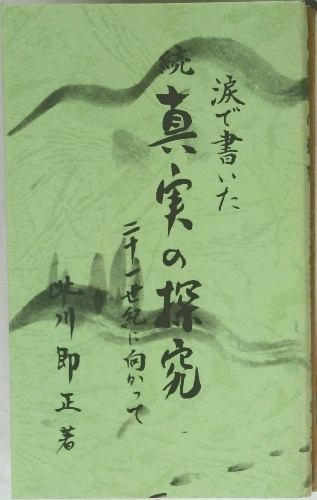 涙で書いた
続 真実の探究
二十一世紀に向かって
此川即正著